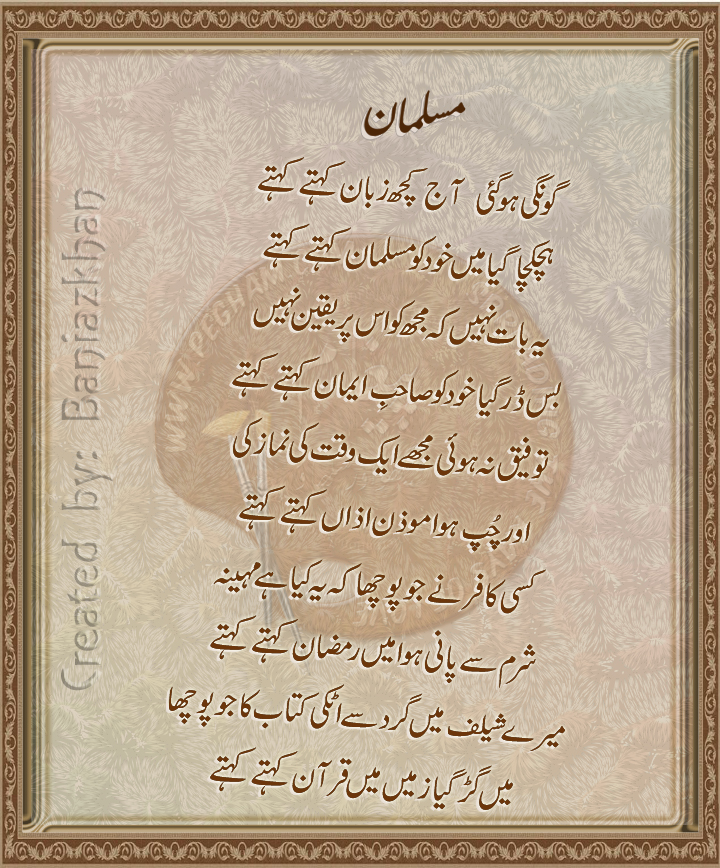 مسلمان
گونگی ہوگئی آج کچھ زبان کہتے کہتے
ہچکچا گیا میں خود کو مسلمان کہتے کہتے
یہ بات نہیں کہ مجھ کو اس پر یقین نہیں
بس ڈر گیا خود کو صاحبِ ایمان کہتے کہتے
توفیق نہ ہوئی مجھے ایک وقت کی نماز کی
اور چُپ ہوا موذن اذاں کہتے کہتے
کسی کافر نے جو پوچھا کہ یہ کیا ہے مہینہ
شرم سے پانی ہوا میں رمضان کہتے کہتے
میرے شیلف میں گرد سے اٹکی کتاب کا جو پوچھا
میں گڑ گیا زمیں میں قرآن کہتے کہتے
Created by: Baniazkhan